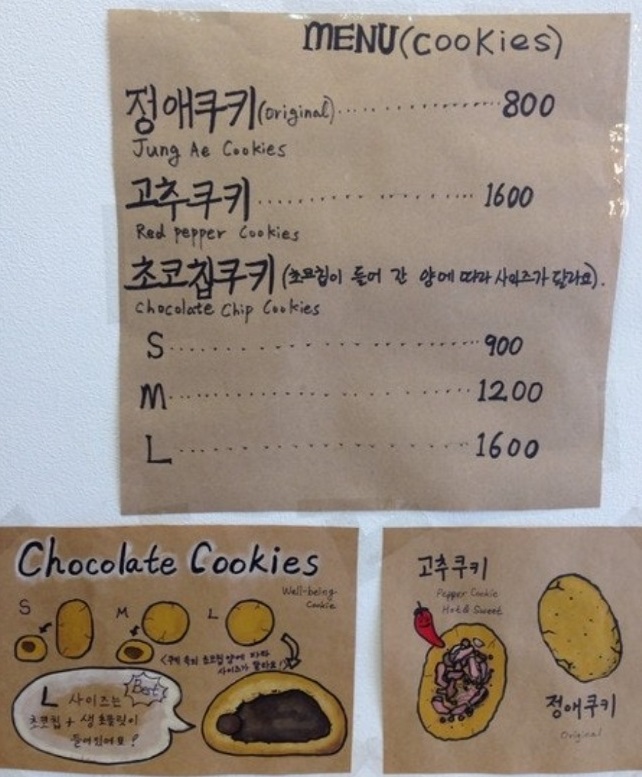 MENU(cookies)
정애쿠키(original)..................800
Jung Ae Cookies
고추쿠키..................1600
Red pepper Cookies
초코칩쿠키(초코칩이 들어 간 양에 따라 사이즈가 달라요).
Chocolate Chip Cookies
S..................900
M..................1200
L..................1600
Chocolate Cookies
Well-being
Cookie
S M L
초코칩 양에 따라
사이즈가 달라요!
Best
L 사이즈는
초코칩 + 생초콜릿이
들어있어요?
고추쿠키
Pepper Cookie
Hot & Sweet
정애쿠키
Original